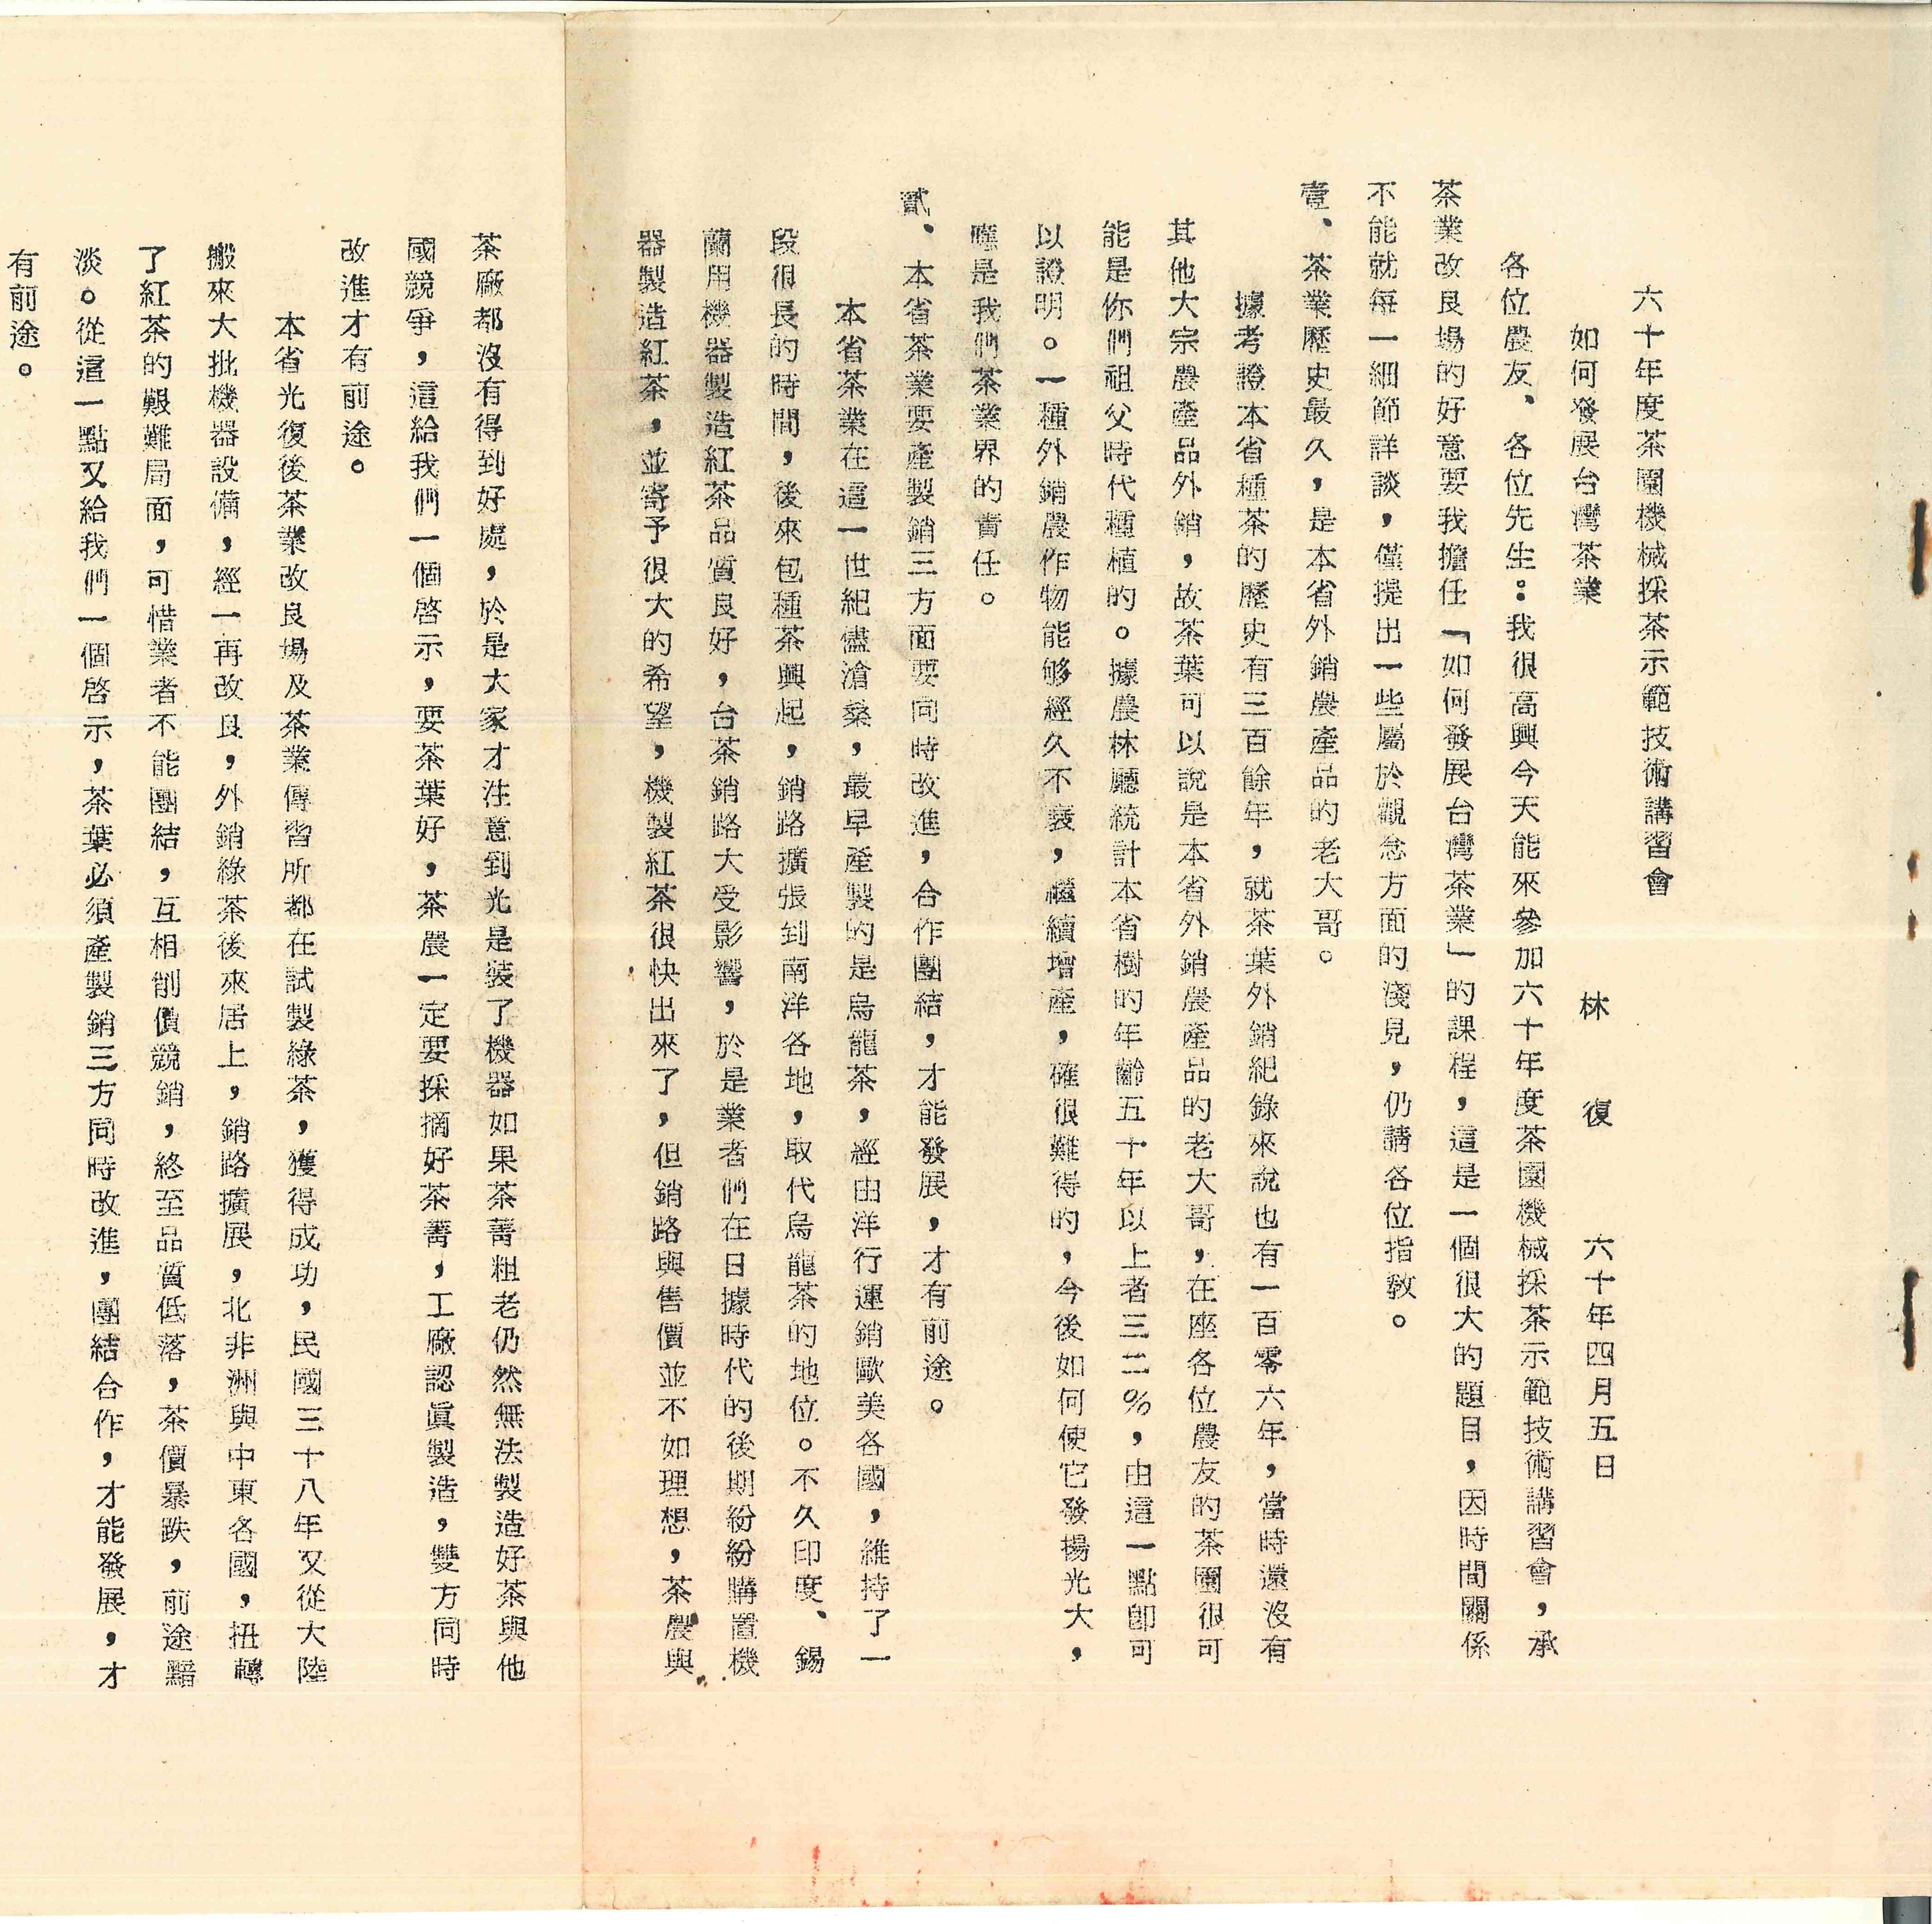 六十年度茶園機械採茶示範技術講習會
如何發展台灣茶業　林復　六十年四月五日
各位農友、各位先生：我很高興今天能來參加六十年度茶園機械採茶示範技術講習會，承
茶業改良場的好意要我擔任「如何發展台灣茶業」的課程，這是一個很大的題目，因時間關係
不能就每一細節詳談，僅提出一些屬於觀念方面的淺見，仍請各位指教。
壹、茶業歷史最久，是本省外銷農產品的老大哥。
據考證本省種茶的歷史有三百餘年，就茶葉外銷紀錄來說也有一百零六年，當時還沒有
其他大宗農產品外銷，故茶葉可以說是本省外銷農產品的老大哥，在座各位農友的茶園很可
能是你們祖父時代種植的。據農林廳統計本省樹的年齡五十年以上者三二％，由這一點卽可
以證明。一種外銷農作物能够經久不衰，繼續增產，確很難得的，今後如何使它發揚光大，
應是我們茶業界的責任。
貳、本省茶業要產製銷三方面要同時改進，合作團結，才能發展，才有前途。
本省茶業在這一世紀儘滄桑，最早產製的是烏龍茶，經由洋行運銷歐美各國，維持了一
段很長的時間，後來包種茶興起，銷路擴張到南洋各地，取代烏龍茶的地位。不久印度、錫
蘭用機器製造紅茶品質良好，台茶銷路大受影響，於是業者們在日據時代的後期紛紛購置機
器製造紅茶，並寄予很大的希望，機製紅茶很快出來了，但銷路與售價並不如理想，茶農與
茶廠都沒有得到好處，於是大家才注意到光是裝了機器如果茶菁粗老仍然無法製造好茶與他
國競爭，這給我們一個啓示，要茶葉好，茶農一定要採摘好茶菁，工廠認眞製造，雙方同時
改進才有前途。
本省光復後茶業改良場及茶業傳習所都在試製綠茶，獲得成功，民國三十八年又從大陸
搬來大批機器設備，經一再改良，外銷綠茶後來居上，銷路擴展，北非洲與中東各國，扭轉
了紅茶的艱難局面，可惜業者不能團結，互相削價競銷，終至品質低落，茶價暴跌，前途黯
淡。從這一點又給我們一個啓示，茶葉必須產製銷三方同時改進，團結合作，才能發展，才
有前途。